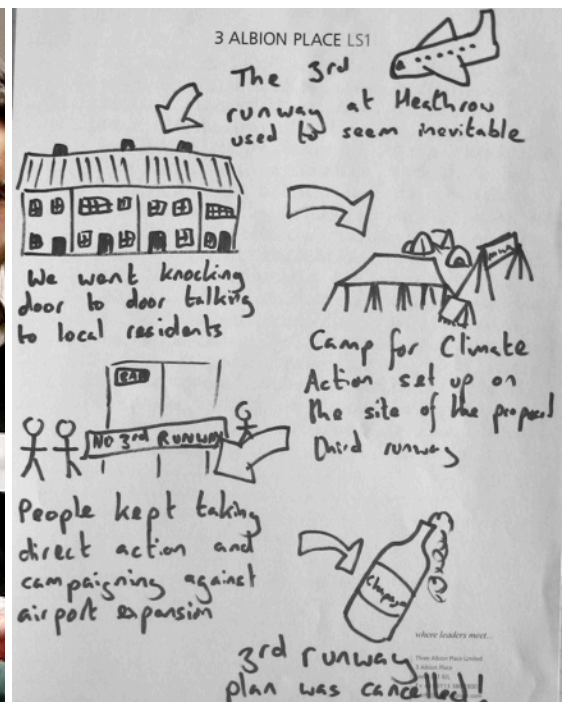 3 ALBION PLACE LS1
The 3rd
runway at Heathrow
used to seem inevitable
We went knocking
door to door talking
to local residents
Camp for Climate
Action set up on
the site of the proposed
third runway
BAA
NO 3rd RUNWAY
People kept taking
direct action and
campaigning against
airport expansion
Champagne
where leaders meet...
Three Albion Place Limited
3 Albion Place
3rd runway
plan was cancelled!